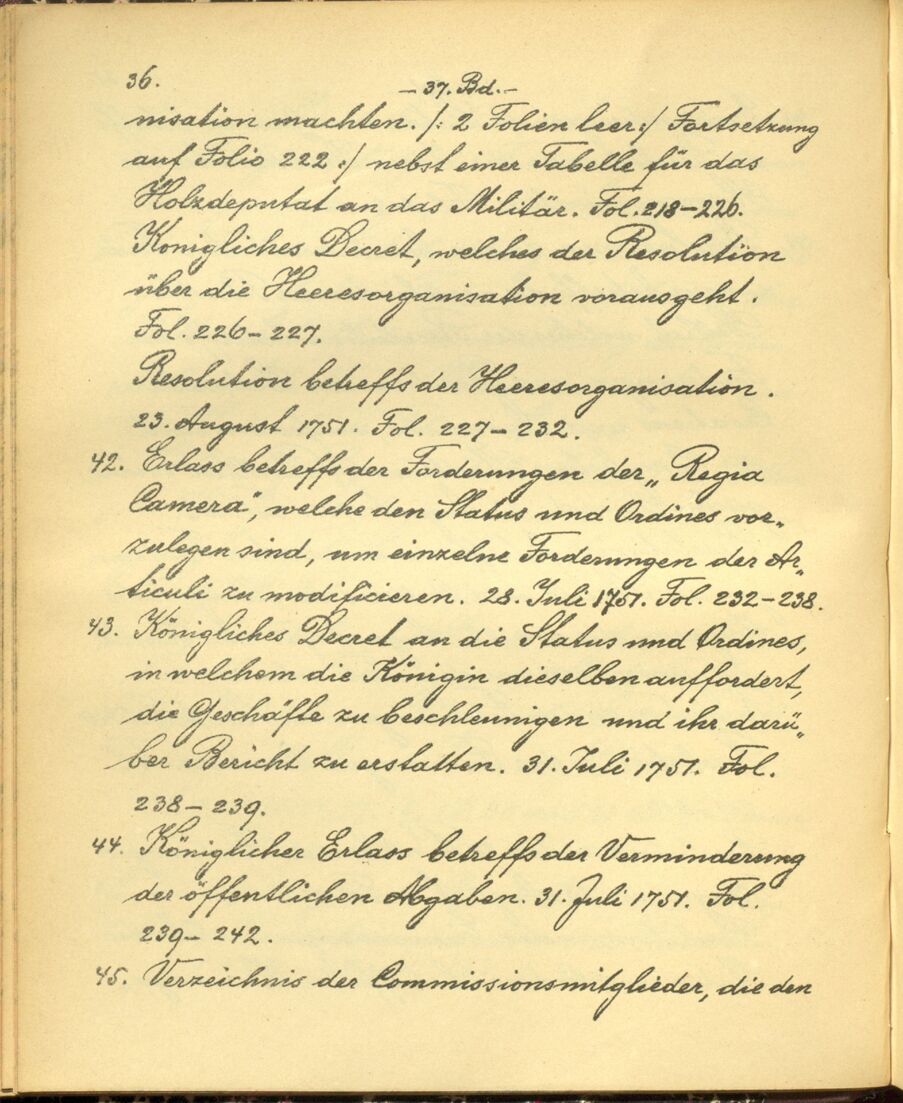 36.
— 37. Bd. —
nisation machten. /: 2 Folien leer :/ Fortsetzung
auf Folio 222 :/ nebst einer Tabelle für das
Holzdeputat an das Militär. Fol. 218—226.
Königliches Decret, welches der Resolution
über die Heeresorganisation vorausgeht.
Fol. 226—227.
Resolution betreffs der Heeresorganisation.
23. August 1751. Fol. 227—232.
42. Erlass betreffs der Forderungen der „Regia
Camera“, welche den Status und Ordines vor„
zulegen sind, um einzelne Forderungen der Ar„
ticuli zu modificieren. 28. Juli 1751. Fol. 232—238.
43. Königliches Decret an die Status und Ordines,
in welchem die Königin dieselben auffordert,
die Geschäfte zu beschleunigen und ihr darü„
ber Bericht zu erstatten. 31. Juli 1751. Fol.
238—239.
44. Königlicher Erlass betreffs der Verminderung
der öffentlichen Abgaben. 31. Juli 1751. Fol.
239—242.
45. Verzeichnis der Commissionsmitglieder, die den